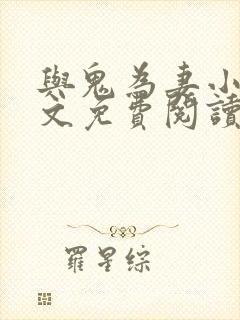 與鬼為妻小
文免費閱讀
羅星綜